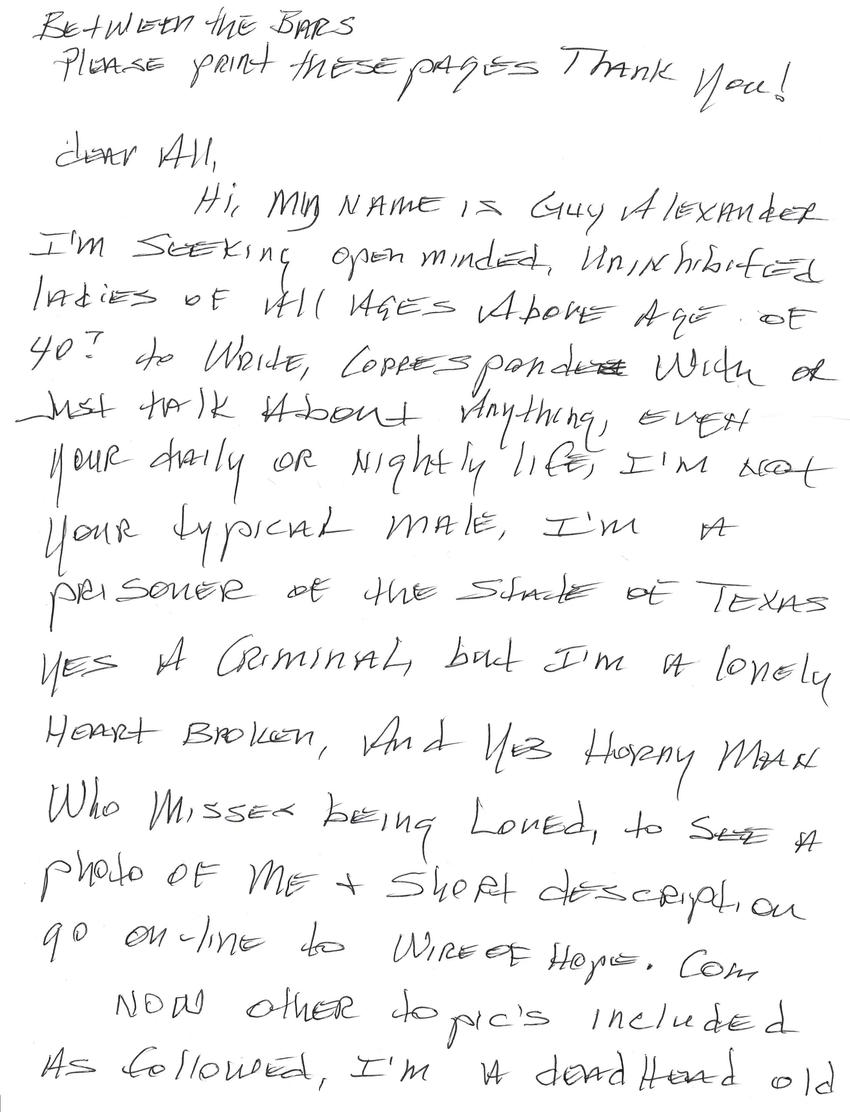 BETWEEN the BARS
PLEASE print thESE pAgES Thank You!
dear All,
Hi, My NAME is Guy AlEXANdER
I'm SEEKing open minded, UNiNhibitEd
ladies of All AgES AbovE AgE of
40? to WRitE, CorrESpond With or
Just tAlk About Anything, EVEN
yOUR dAily OR Nightly lifE, I'm Not
yOUR typical malE, I'm A
pRiSONER of thE StatE of TEXAS
YES A CRiMiNAl, but I'm A lonEly
HEARt BROkEn, And YES HORNy MAN
Who MissES bEing LovEd, to SEE A
photo OF ME + ShoRt dEScRiption
go on-linE to WiREOFHopE.Com
NOW othER topic's includEd
AS followEd, I'm A dEAdHEAd old